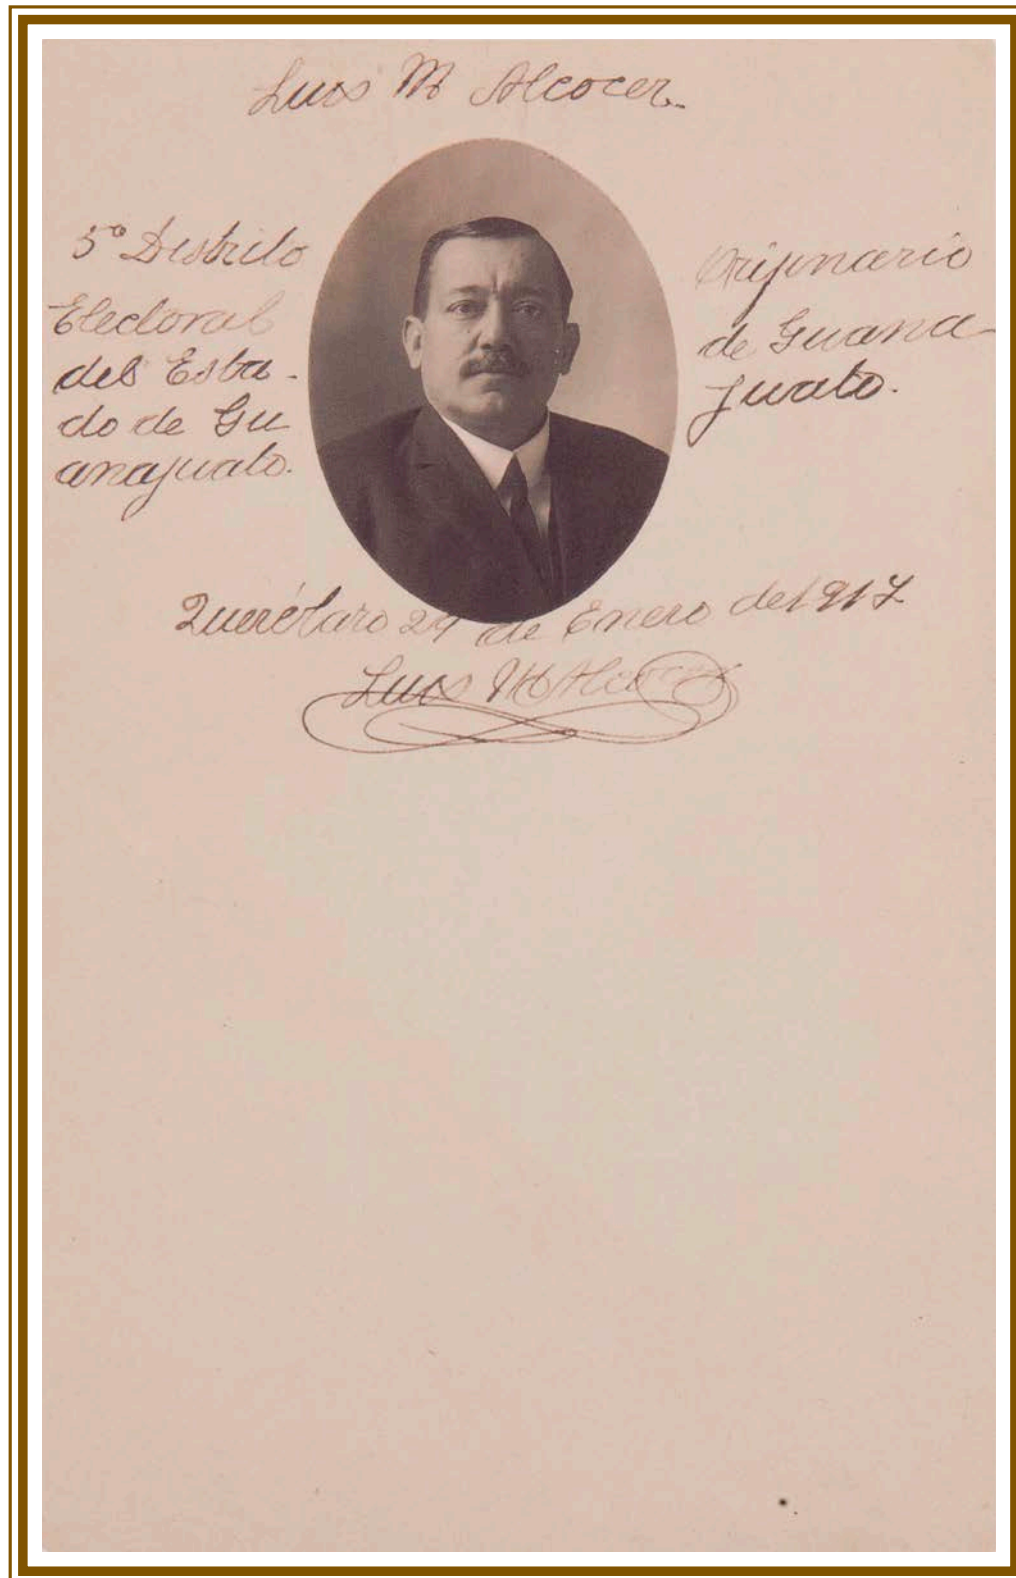 Luis M Alcocer.
5º Distrito
Electoral
del Esta-
do de Gu
anajuato.
Orijinario
de Guana-
juato.
Querétaro 24 de Enero de 1917
Luis M Alcocer